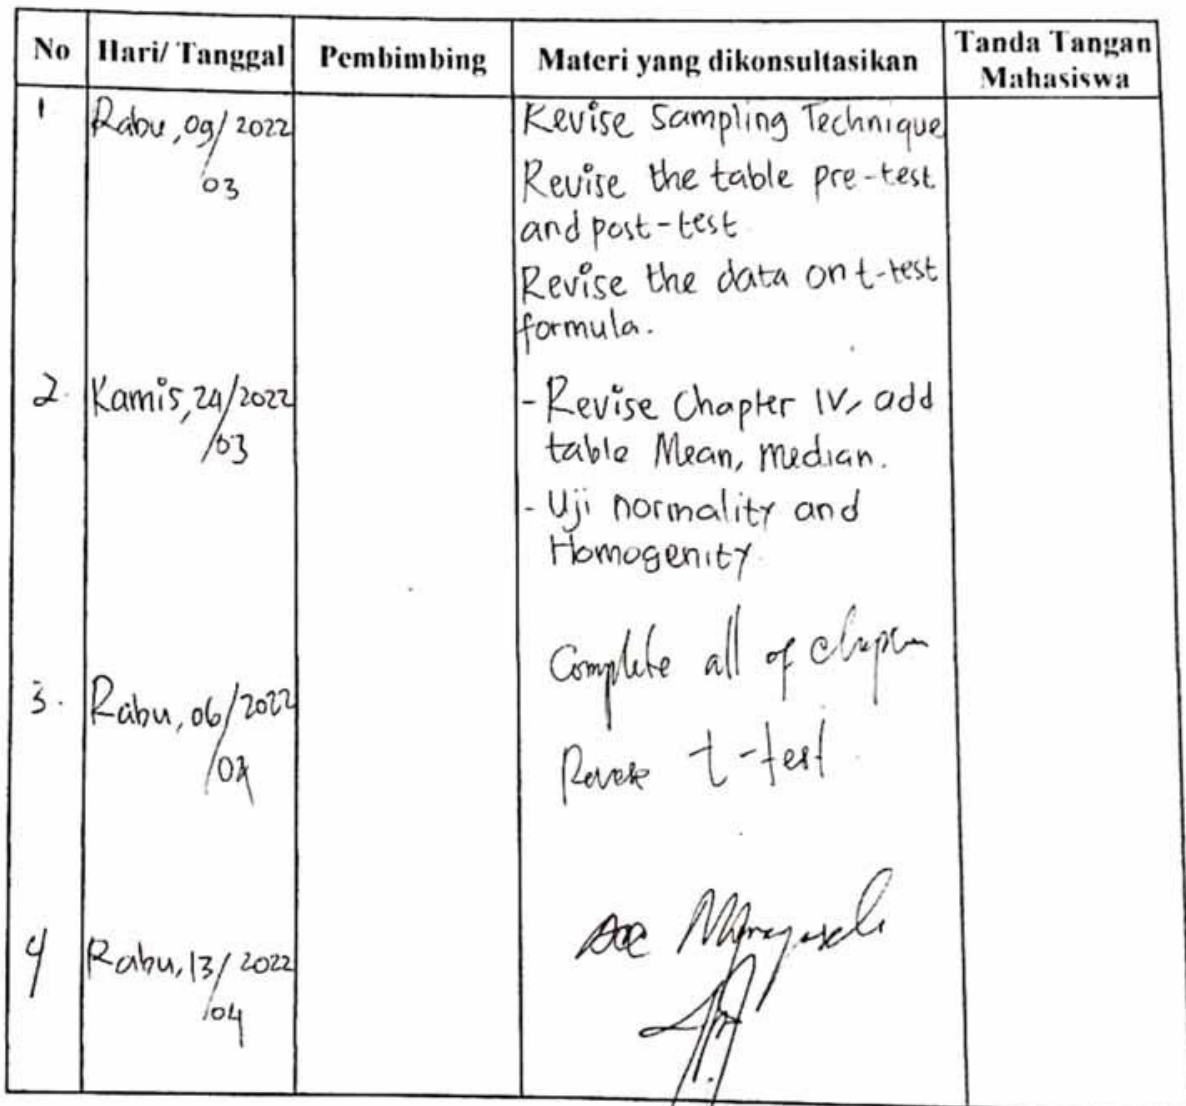 No Hari/ Tanggal Pembimbing Materi yang dikonsultasikan Tanda Tangan Mahasiswa
1 Rabu, 09/03 2022 Revise Sampling Technique
Revise the table pre-test
and post-test
Revise the data on t-test
formula.
2. Kamis, 24/03 2022 - Revise Chapter IV, add
table Mean, median.
- Uji normality and
Homogenity
Complete all of
3. Rabu, 06/2022
t-test
4 Rabu, 13/04 2022 Acc